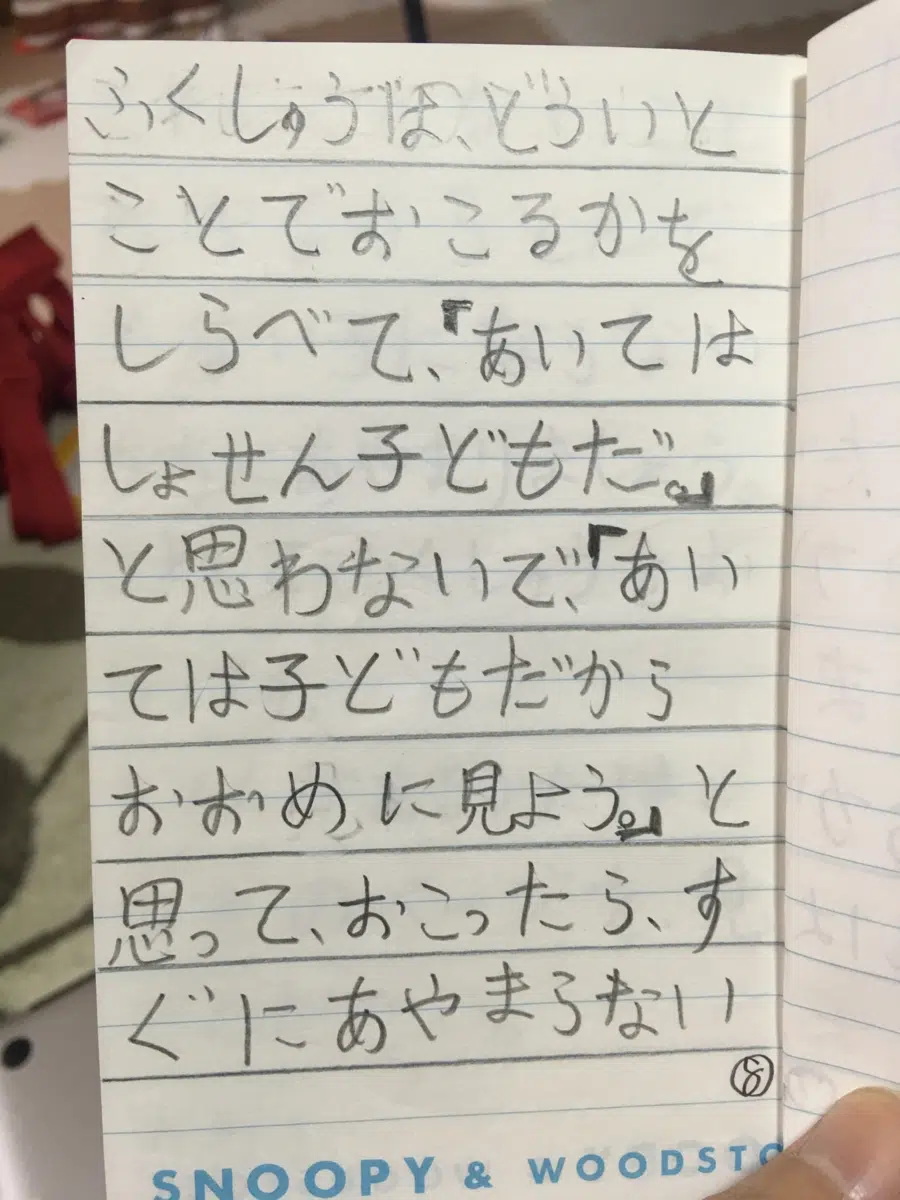 ふくしゅうは、どういと
ことでおこるかを
しらべて、『あいては
しょせん子どもだ。』
と思わないで、『あい
ては子どもだから
おおめに見よう。』と
思って、おこったら、す
ぐにあやまらない
⑧
SNOOPY & WOODSTO